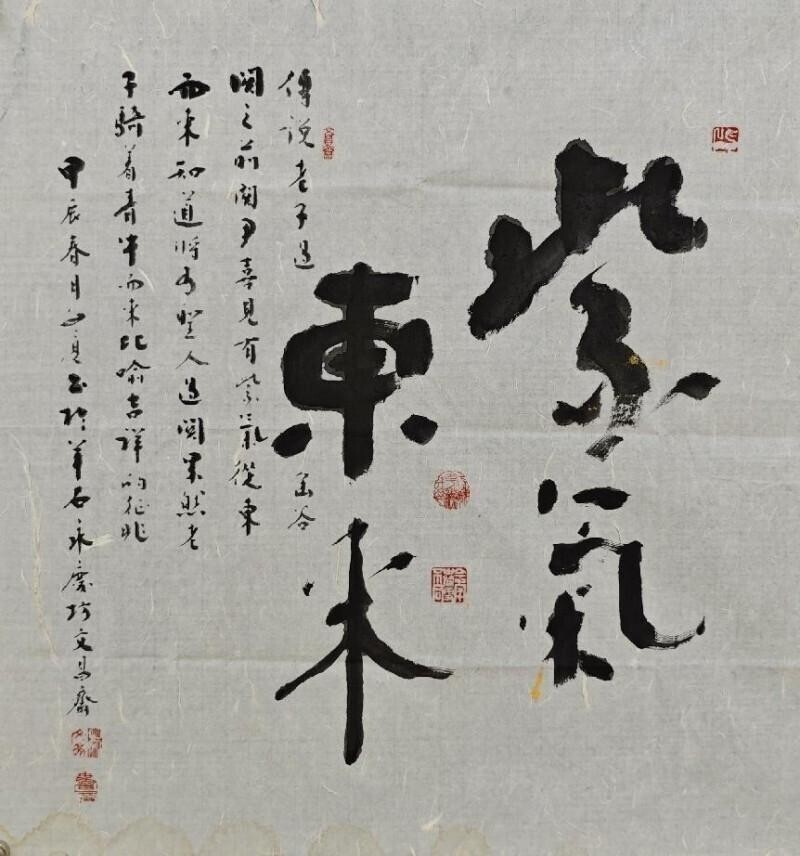 紫氣
東来
傳説老子過函谷
関之前関尹喜見有紫氣從東
而来知道將有聖人過関果然老
子騎着青牛而来比喻吉祥的征兆
甲辰春月 書於羊石永慶坊文昌齋